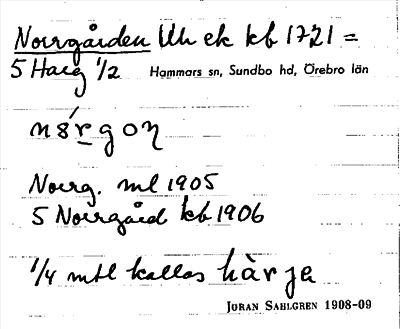 Norrgården Uh ek kb 1721 =
5 Haeg 1/2 Hammars sn, Sundbo hd, Örebro län
Norrg. ml 1905
5 Norrgård kb 1906
1/4 mtl kallas hàrja
JÖRAN SAHLGREN 1908-09